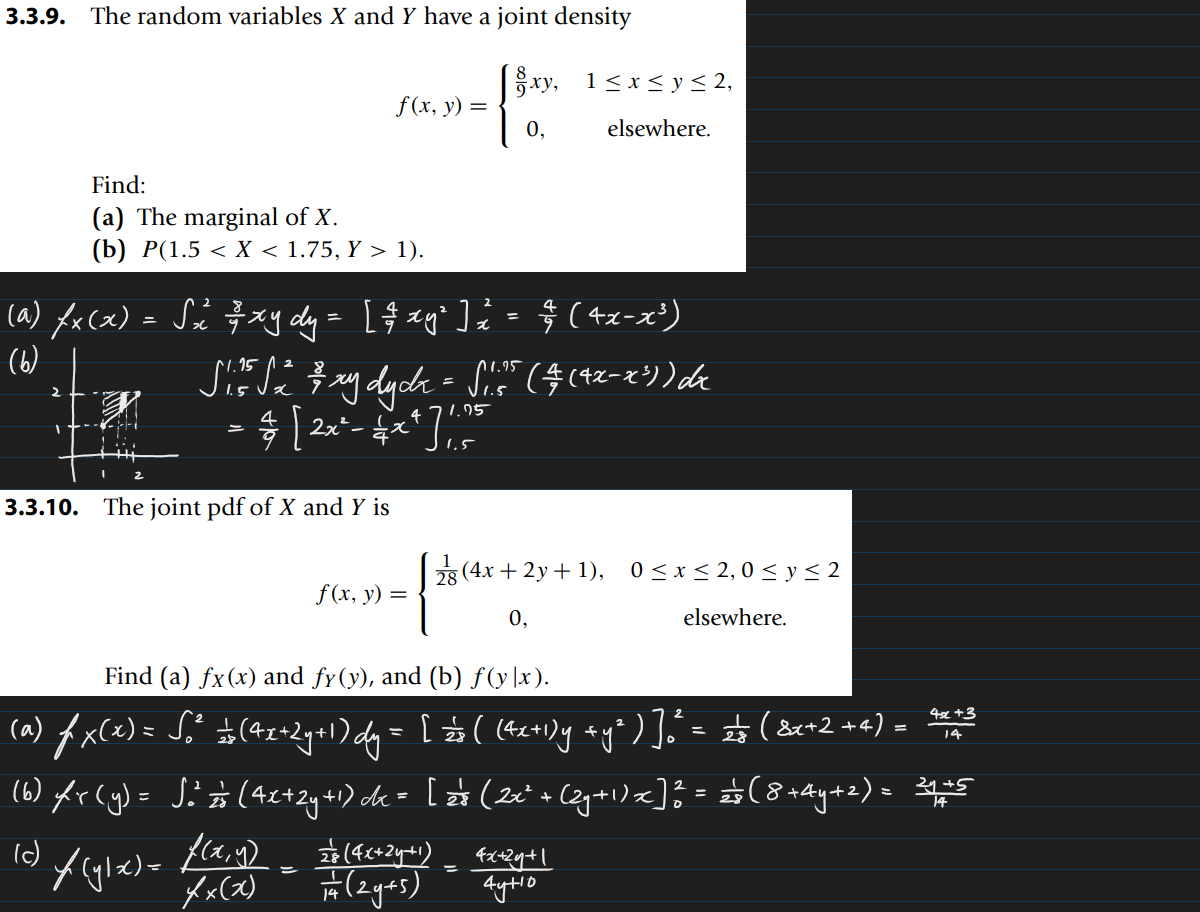 3.3.9. The random variables X and Y have a joint density
f(x, y) = { 8/9 xy, 1 ≤ x ≤ y ≤ 2,
0, elsewhere.
Find:
(a) The marginal of X.
(b) P(1.5 < X < 1.75, Y > 1).
(a) fx(x) = ∫_x^2 8/9 xy dy = [4/9 xy²]_x^2 = 4/9 (4x-x³)
(b) ∫_1.5^1.75 ∫_x^2 8/9 xy dy dx = ∫_1.5^1.75 (4/9 (4x-x³)) dx
= 4/9 [2x² - 1/4 x⁴]_1.5^1.75
2
1
1 2
3.3.10. The joint pdf of X and Y is
f(x, y) = { 1/28 (4x + 2y + 1), 0 ≤ x ≤ 2, 0 ≤ y ≤ 2
0, elsewhere.
Find (a) fX(x) and fY(y), and (b) f(y|x).
(a) fx(x) = ∫_0^2 1/28 (4x+2y+1) dy = [1/28 ((4x+1)y + y²)]_0^2 = 1/28 (8x+2+4) = 4x+3/14
(b) fY(y) = ∫_0^2 1/28 (4x+2y+1) dx = [1/28 (2x² + (2y+1)x]_0^2 = 1/28 (8+4y+2) = 2y+5/14
(c) f(y|x) = f(x,y)/fx(x) = 1/28 (4x+2y+1) / 1/14 (2y+5) = 4x+2y+1/4y+10